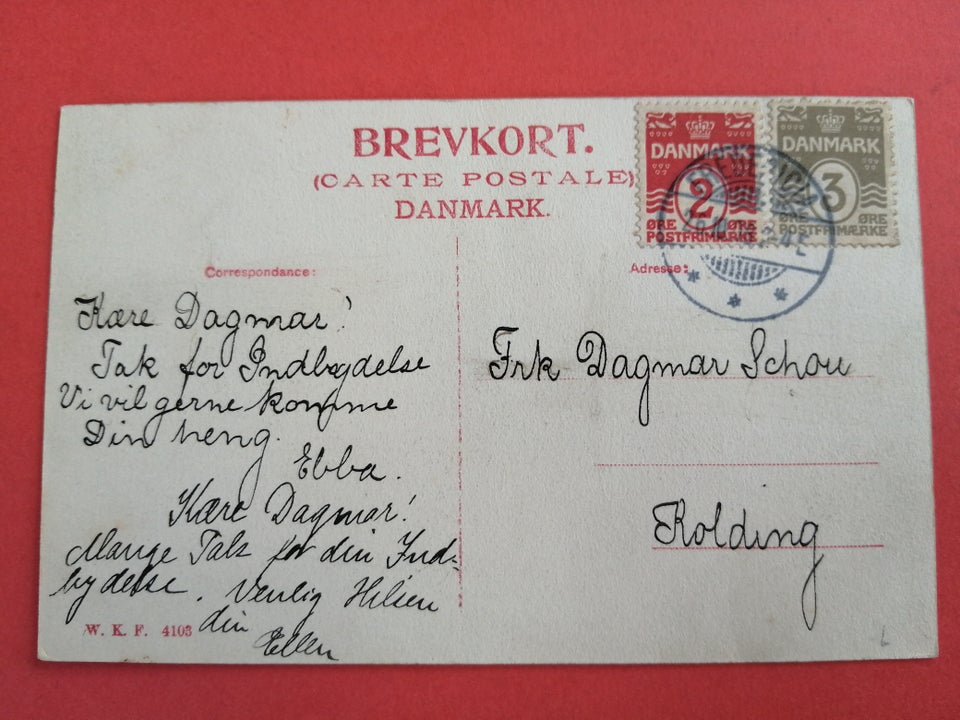 BREVKORT.
(CARTE POSTALE)
DANMARK.
DANMARK
2
ØRE ØRE
POSTFRIMÆRKE
DANMARK
3
ØRE ØRE
POSTFRIMÆRKE
Correspondance:
Kære Dagmar!
Tak for Indbydelse
Vi vil gerne komme
Din heng.
Ebba.
Kære Dagmar!
Mange Tak for din Ind-
bydelse. Venlig Hilsen
din
Ellen
W. K. F. 4103
Adresse:
Frk Dagmar Schou
Kolding